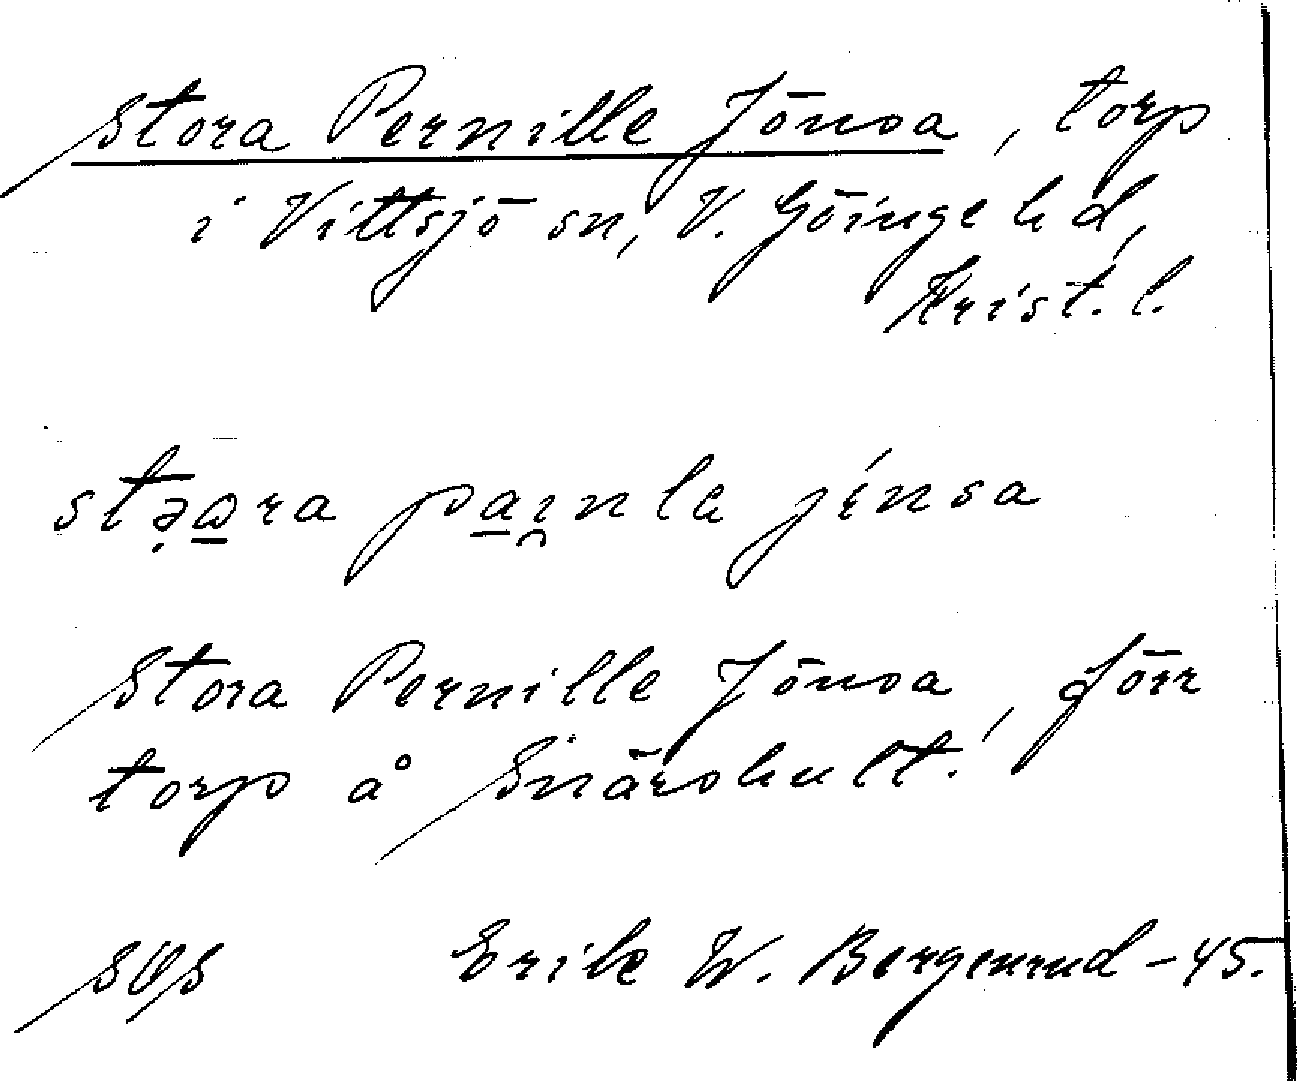 Stora Pernille Jönsa, torp
i Vittsjö sn, V. Göinge hd,
Krist. l.
stə̣ω̱ra pa̱ı̯nlɐ jénsa
Stora Pernille Jönsa, förr
torp å Snärshult.
SOS Erik W. Bergenrud -45.